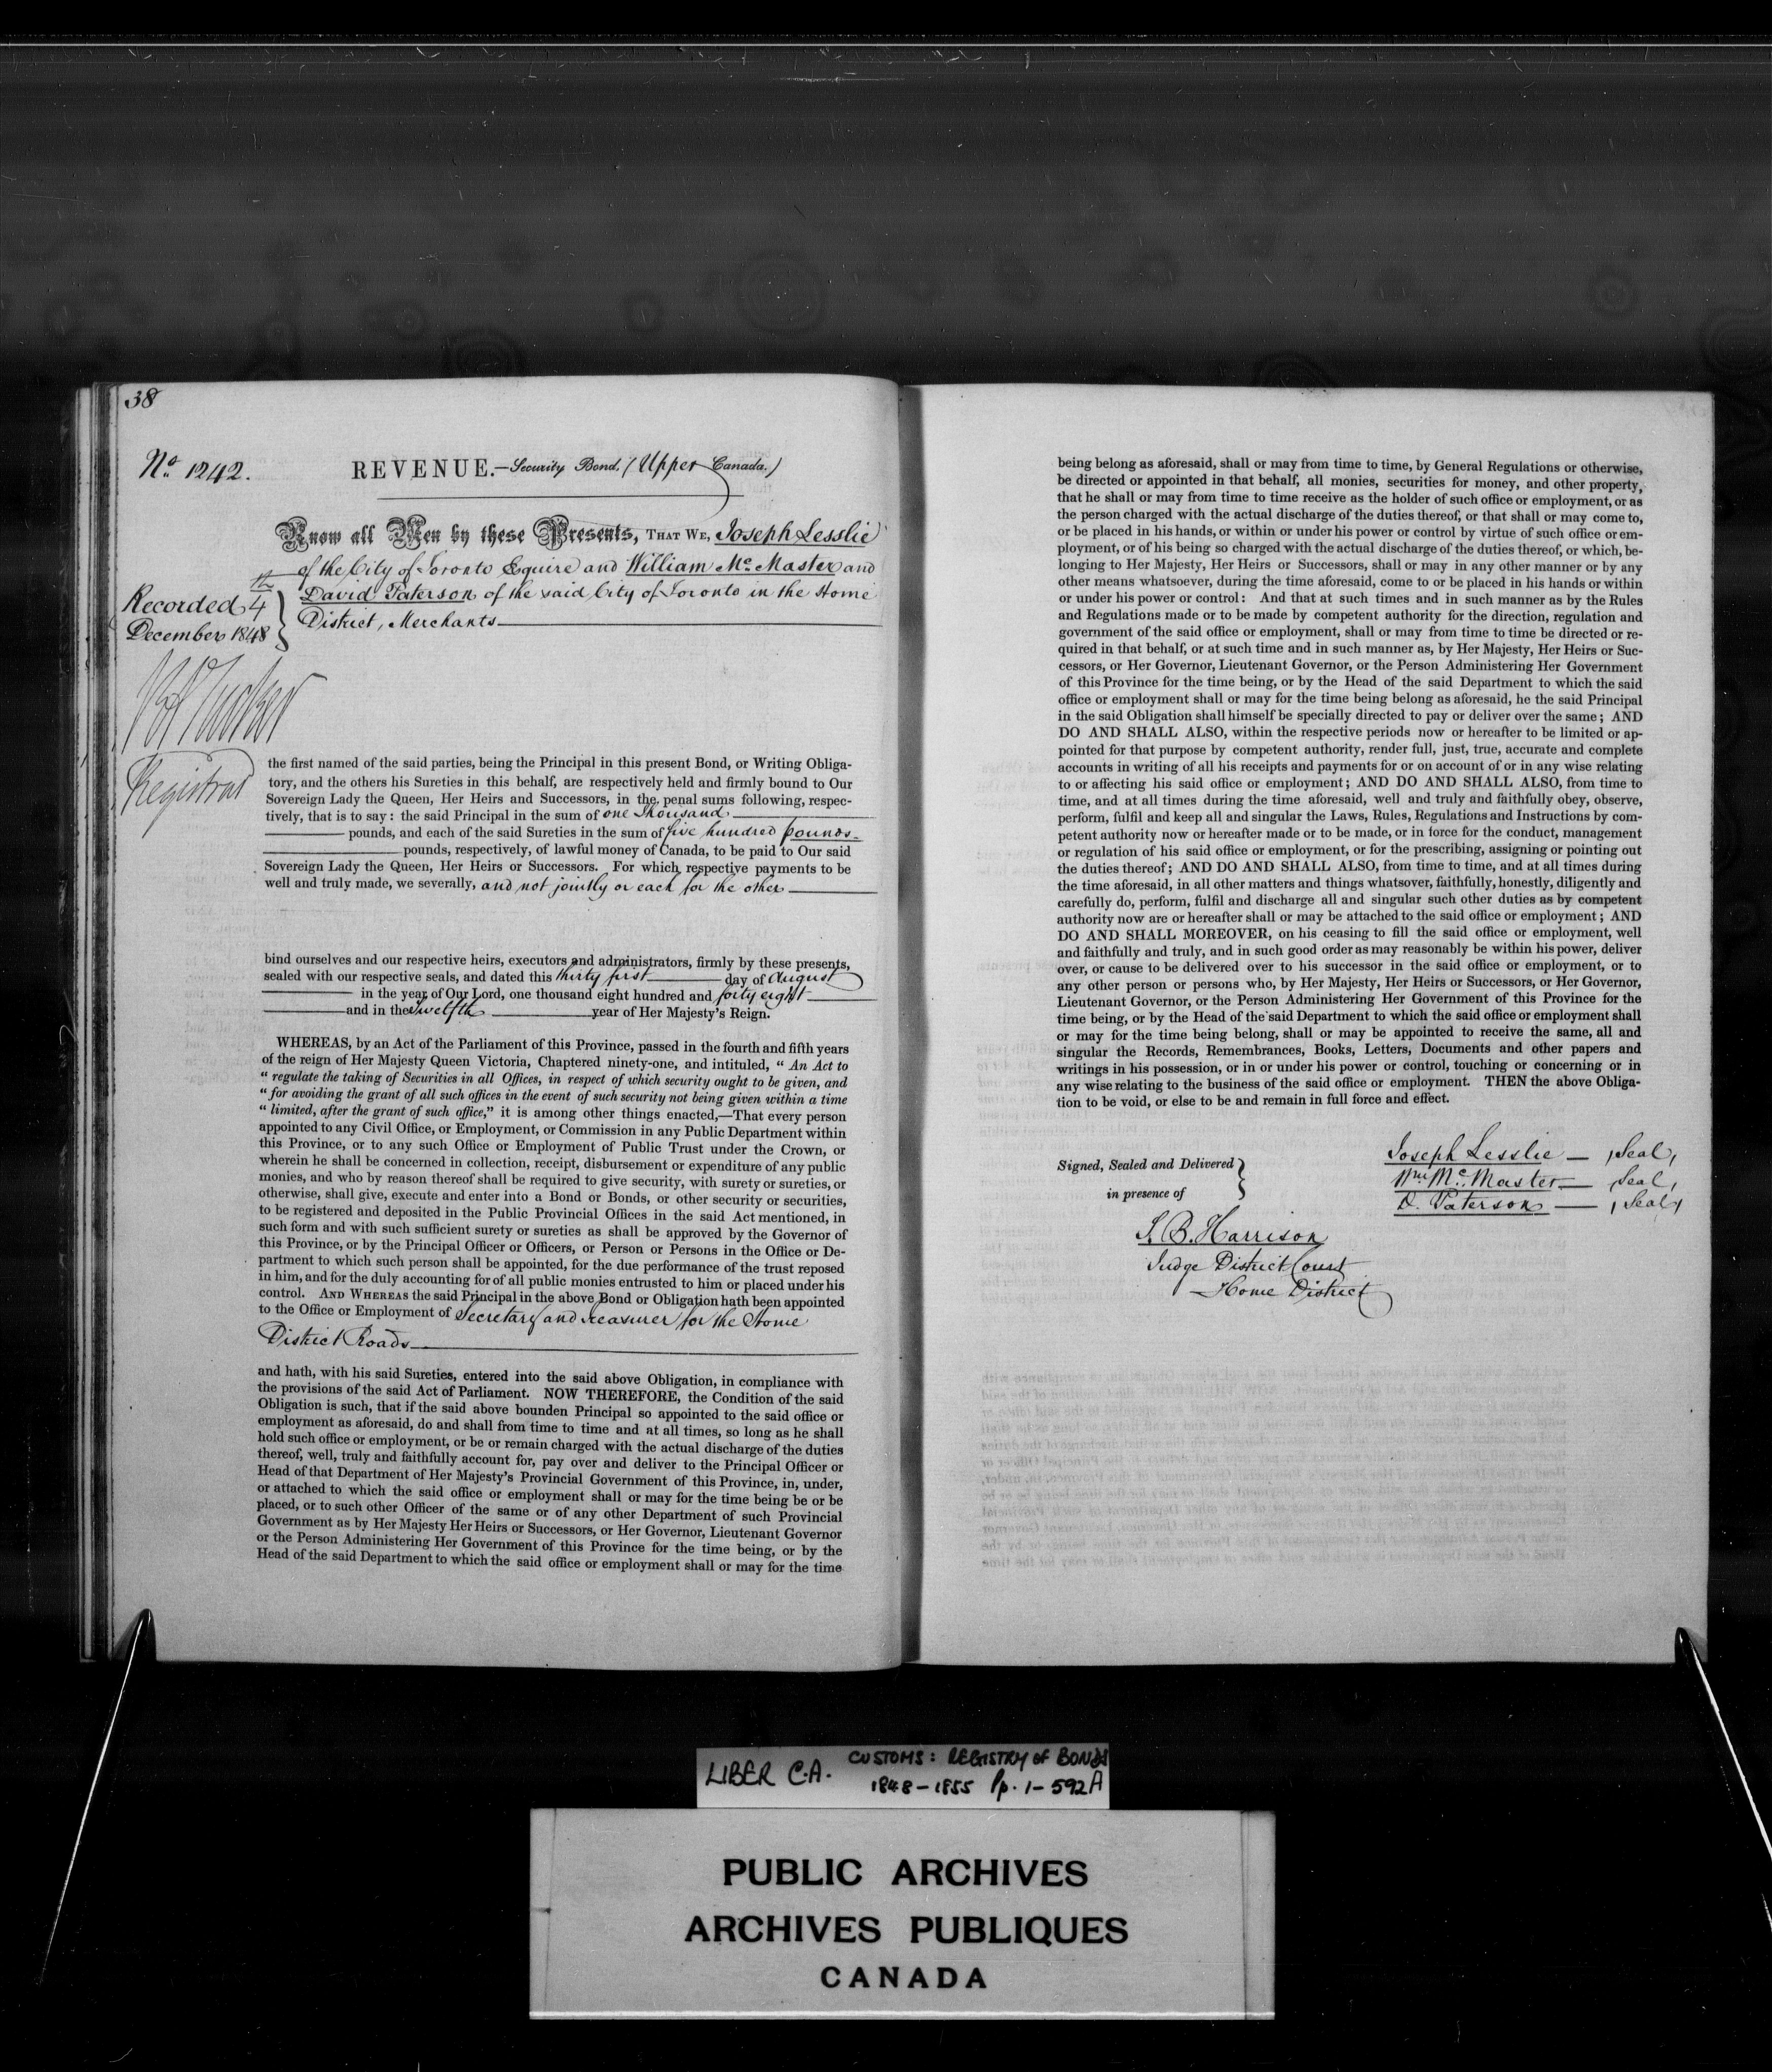 38
No. 1242.
REVENUE.—Security Bond. (Upper Canada.)
Know all Men by these Presents, THAT WE, Joseph Lesslie
of the City of Toronto Esquire and William Mc. Master and
David Paterson of the said City of Toronto in the Home
District, Merchants
Recorded 4th
December 1848
Tucker
Registrar
the first named of the said parties, being the Principal in this present Bond, or Writing Obliga-
tory, and the others his Sureties in this behalf, are respectively held and firmly bound to Our
Sovereign Lady the Queen, Her Heirs and Successors, in the penal sums following, respec-
tively, that is to say: the said Principal in the sum of one thousand
pounds, and each of the said Sureties in the sum of five hundred pounds
pounds, respectively, of lawful money of Canada, to be paid to Our said
Sovereign Lady the Queen, Her Heirs or Successors. For which respective payments to be
well and truly made, we severally, and not jointly or each for the other
bind ourselves and our respective heirs, executors and administrators, firmly by these presents,
sealed with our respective seals, and dated this thirty first day of August
in the year of Our Lord, one thousand eight hundred and forty eight
and in the twelfth year of Her Majesty's Reign.
WHEREAS, by an Act of the Parliament of this Province, passed in the fourth and fifth years
of the reign of Her Majesty Queen Victoria, Chaptered ninety-one, and intituled, " An Act to
" regulate the taking of Securities in all Offices, in respect of which security ought to be given, and
" for avoiding the grant of all such offices in the event of such security not being given within a time
" limited, after the grant of such office," it is among other things enacted,—That every person
appointed to any Civil Office, or Employment, or Commission in any Public Department within
this Province, or to any such Office or Employment of Public Trust under the Crown, or
wherein he shall be concerned in collection, receipt, disbursement or expenditure of any public
monies, and who by reason thereof shall be required to give security, with surety or sureties, or
otherwise, shall give, execute and enter into a Bond or Bonds, or other security or securities,
to be registered and deposited in the Public Provincial Offices in the said Act mentioned, in
such form and with such sufficient surety or sureties as shall be approved by the Governor of
this Province, or by the Principal Officer or Officers, or Person or Persons in the Office or De-
partment to which such person shall be appointed, for the due performance of the trust reposed
in him, and for the duly accounting for of all public monies entrusted to him or placed under his
control. AND WHEREAS the said Principal in the above Bond or Obligation hath been appointed
to the Office or Employment of Secretary and Treasurer for the Home
District Roads
and hath, with his said Sureties, entered into the said above Obligation, in compliance with
the provisions of the said Act of Parliament. NOW THEREFORE, the Condition of the said
Obligation is such, that if the said above bounden Principal so appointed to the said office or
employment as aforesaid, do and shall from time to time and at all times, so long as he shall
hold such office or employment, or be or remain charged with the actual discharge of the duties
thereof, well, truly and faithfully account for, pay over and deliver to the Principal Officer or
Head of that Department of Her Majesty's Provincial Government of this Province, in, under,
or attached to which the said office or employment shall or may for the time being be or be
placed, or to such other Officer of the same or of any other Department of such Provincial
Government as by Her Majesty Her Heirs or Successors, or Her Governor, Lieutenant Governor
or the Person Administering Her Government of this Province for the time being, or by the
Head of the said Department to which the said office or employment shall or may for the time
being belong as aforesaid, shall or may from time to time, by General Regulations or otherwise,
be directed or appointed in that behalf, all monies, securities for money, and other property,
that he shall or may from time to time receive as the holder of such office or employment, or as
the person charged with the actual discharge of the duties thereof, or that shall or may come to,
or be placed in his hands, or within or under his power or control by virtue of such office or em-
ployment, or of his being so charged with the actual discharge of the duties thereof, or which, be-
longing to Her Majesty, Her Heirs or Successors, shall or may in any other manner or by any
other means whatsoever, during the time aforesaid, come to or be placed in his hands or within
or under his power or control: And that at such times and in such manner as by the Rules
and Regulations made or to be made by competent authority for the direction, regulation and
government of the said office or employment, shall or may from time to time be directed or re-
quired in that behalf, or at such time and in such manner as, by Her Majesty, Her Heirs or Suc-
cessors, or Her Governor, Lieutenant Governor, or the Person Administering Her Government
of this Province for the time being, or by the Head of the said Department to which the said
office or employment shall or may for the time being belong as aforesaid, he the said Principal
in the said Obligation shall himself be specially directed to pay or deliver over the same; AND
DO AND SHALL ALSO, within the respective periods now or hereafter to be limited or ap-
pointed for that purpose by competent authority, render full, just, true, accurate and complete
accounts in writing of all his receipts and payments for or on account of or in any wise relating
to or affecting his said office or employment; AND DO AND SHALL ALSO, from time to
time, and at all times during the time aforesaid, well and truly and faithfully obey, observe,
perform, fulfil and keep all and singular the Laws, Rules, Regulations and Instructions by com-
petent authority now or hereafter made or to be made, or in force for the conduct, management
or regulation of his said office or employment, or for the prescribing, assigning or pointing out
the duties thereof; AND DO AND SHALL ALSO, from time to time, and at all times during
the time aforesaid, in all other matters and things whatsover, faithfully, honestly, diligently and
carefully do, perform, fulfil and discharge all and singular such other duties as by competent
authority now are or hereafter shall or may be attached to the said office or employment; AND
DO AND SHALL MOREOVER, on his ceasing to fill the said office or employment, well
and faithfully and truly, and in such good order as may reasonably be within his power, deliver
over, or cause to be delivered over to his successor in the said office or employment, or to
any other person or persons who, by Her Majesty, Her Heirs or Successors, or Her Governor,
Lieutenant Governor, or the Person Administering Her Government of this Province for the
time being, or by the Head of the said Department to which the said office or employment shall
or may for the time being belong, shall or may be appointed to receive the same, all and
singular the Records, Remembrances, Books, Letters, Documents and other papers and
writings in his possession, or in or under his power or control, touching or concerning or in
any wise relating to the business of the said office or employment. THEN the above Obliga-
tion to be void, or else to be and remain in full force and effect.
Signed, Sealed and Delivered
in presence of
Joseph Lesslie — Seal,
Wm. Mc. Master — Seal,
D. Paterson — Seal,
S. B. Harrison
Judge District Court
Home District
LIBER C.A. CUSTOMS: REGISTRY OF BONDS
1848-1855 Pp. 1-592A
PUBLIC ARCHIVES
ARCHIVES PUBLIQUES
CANADA